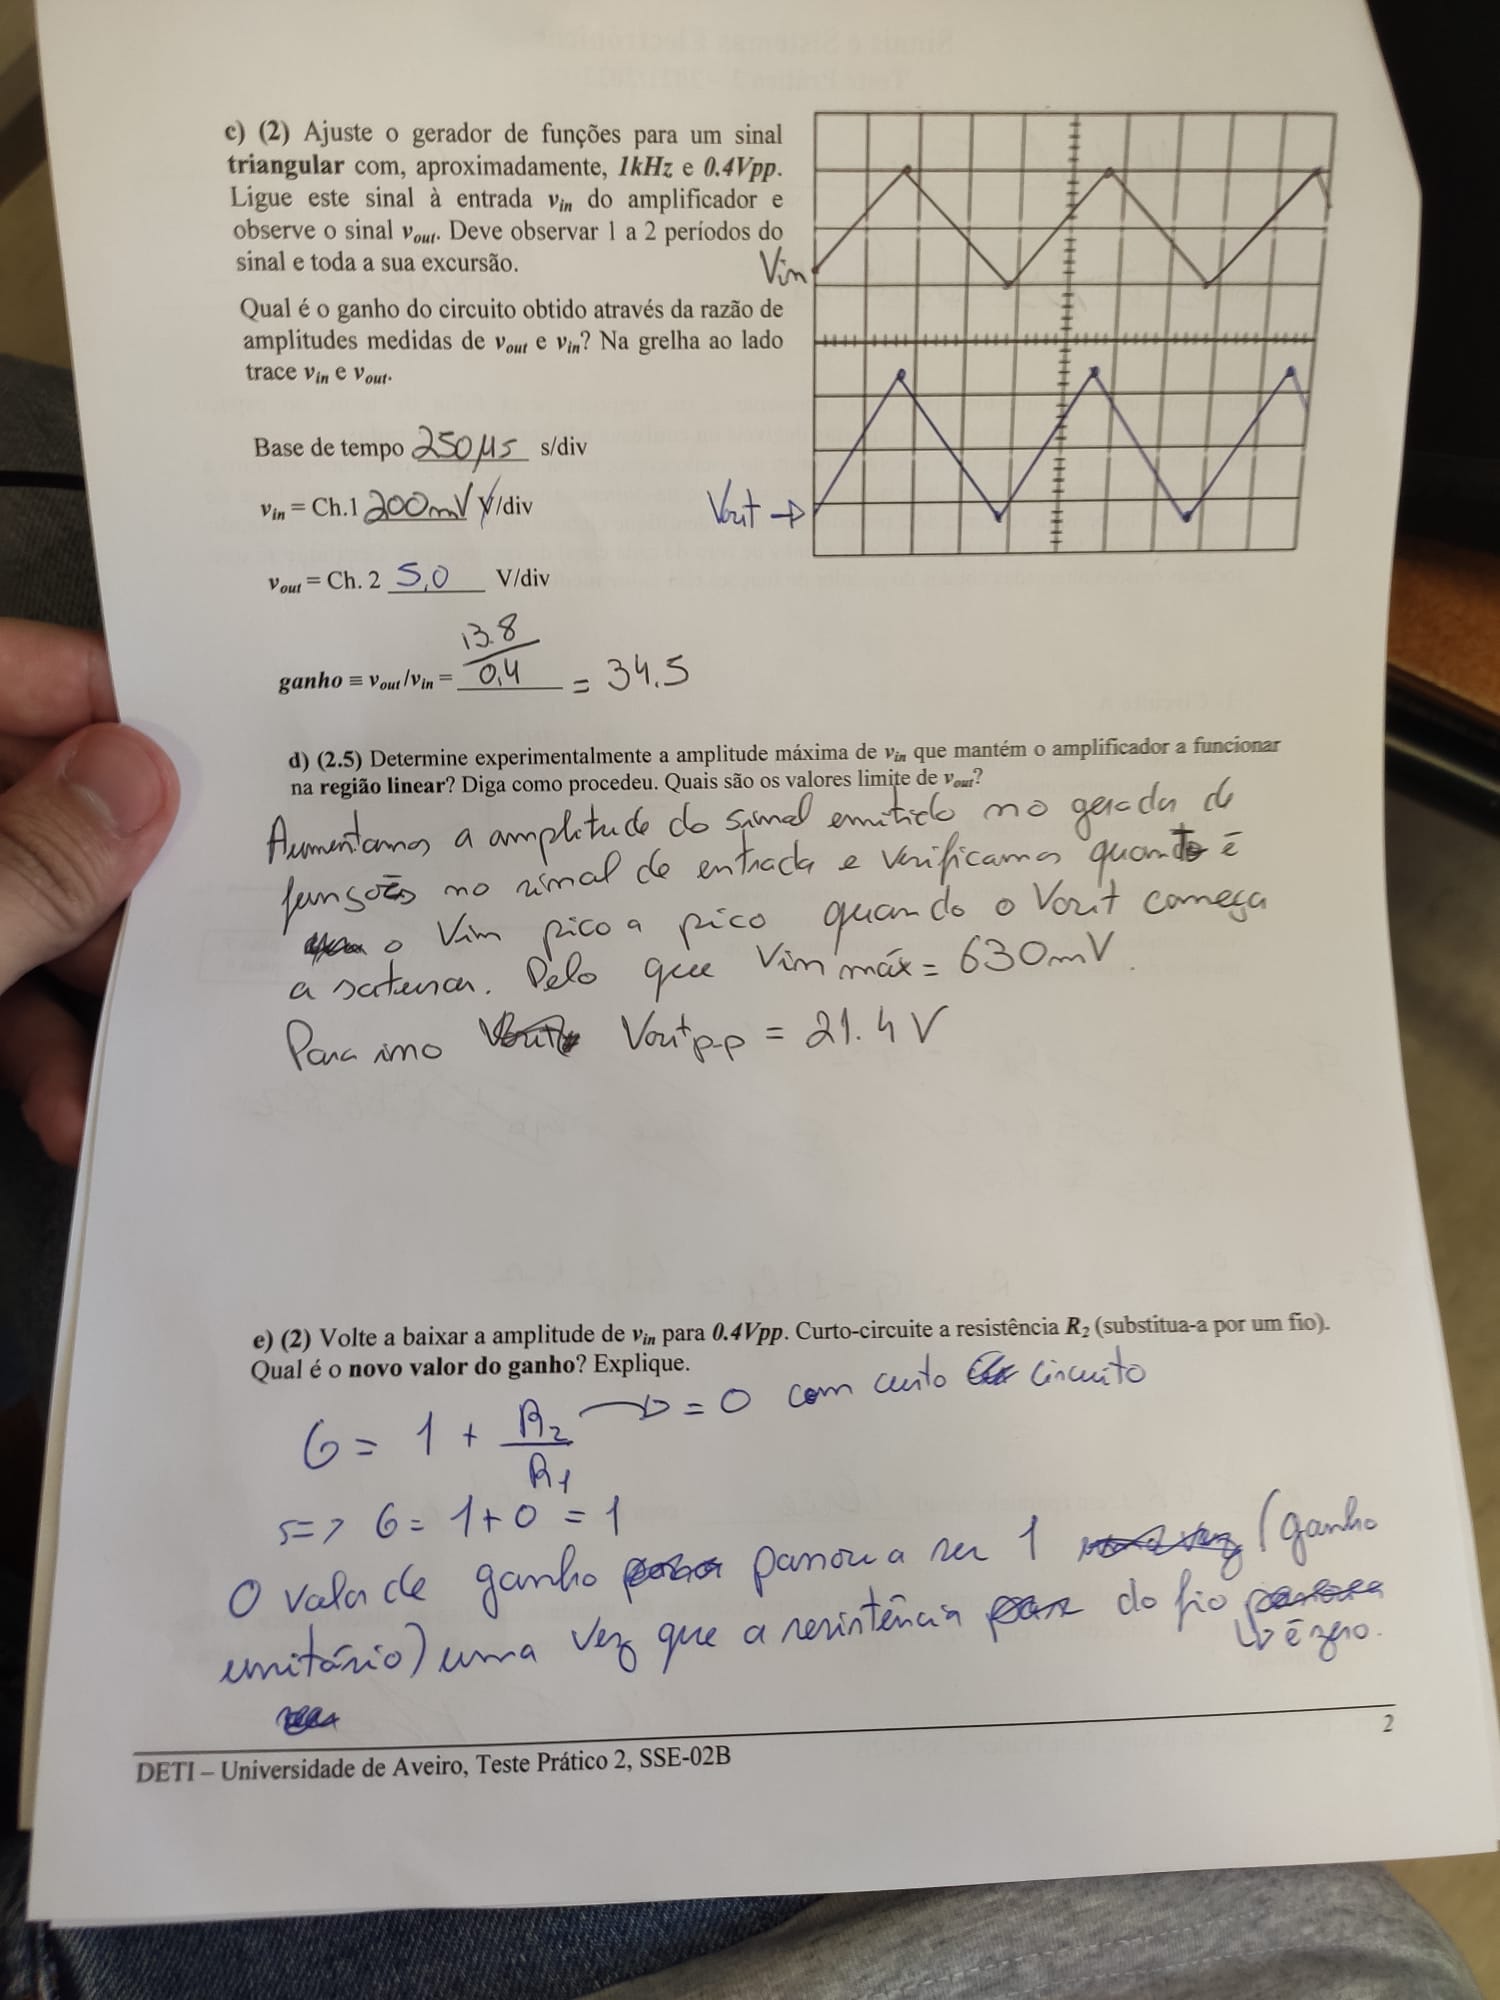 c) (2) Ajuste o gerador de funções para um sinal
triangular com, aproximadamente, 1kHz e 0.4Vpp.
Ligue este sinal à entrada vin do amplificador e
observe o sinal vout. Deve observar 1 a 2 períodos do
sinal e toda a sua excursão.
Vin
Qual é o ganho do circuito obtido através da razão de
amplitudes medidas de vout e vin? Na grelha ao lado
trace vin e vout.
Base de tempo 250µs s/div
vin = Ch.1 200mV V/div
Vout →
vout = Ch. 2 5,0 V/div
ganho ≡ vout/vin = 13.8/0,4 = 34.5
d) (2.5) Determine experimentalmente a amplitude máxima de vin que mantém o amplificador a funcionar
na região linear? Diga como procedeu. Quais são os valores limite de vout?
Aumentamos a amplitude do sinal emitido no gerador de
funções no sinal de entrada e verificamos quanto é
o Vin pico a pico quando o Vout começa
a saturar. Pelo que Vin máx = 630mV.
Para isso Voutp-p = 21.4 V
e) (2) Volte a baixar a amplitude de vin para 0.4Vpp. Curto-circuite a resistência R2 (substitua-a por um fio).
Qual é o novo valor do ganho? Explique.
G = 1 + R2/R1 → = 0 com curto circuito
=> G = 1+0 = 1
O valor de ganho passou a ser 1 (ganho
unitário) uma vez que a resistência do fio
↳ é zero.
2
DETI – Universidade de Aveiro, Teste Prático 2, SSE-02B